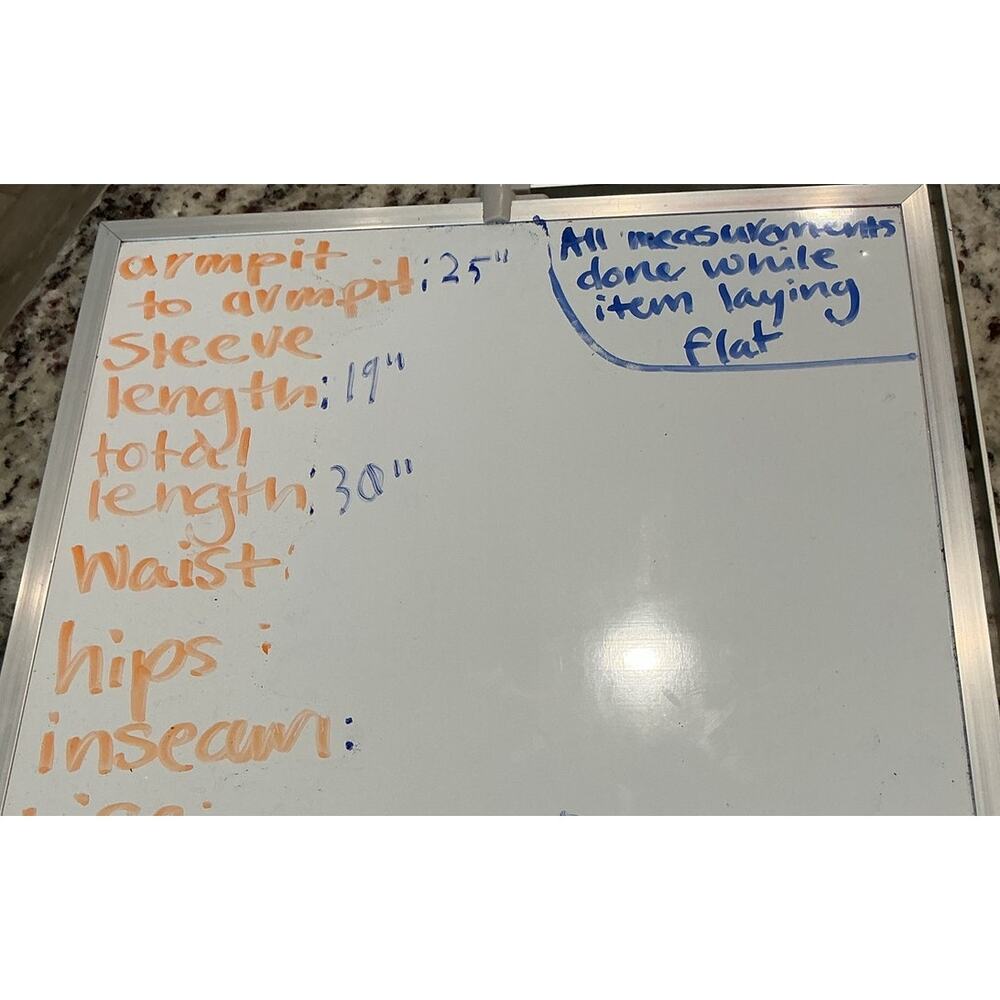 armpit
to armpit: 25"
Sleeve
length: 19"
total
length: 30"
Waist:
hips :
inseam:
All measurements
done while
item laying
flat